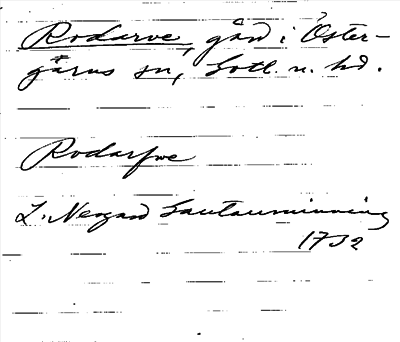 Rodarve, gård i Öster-
garns sn, Gotl. n. hd.
Rodarfwe
L. Neogard Gautauminning
1732